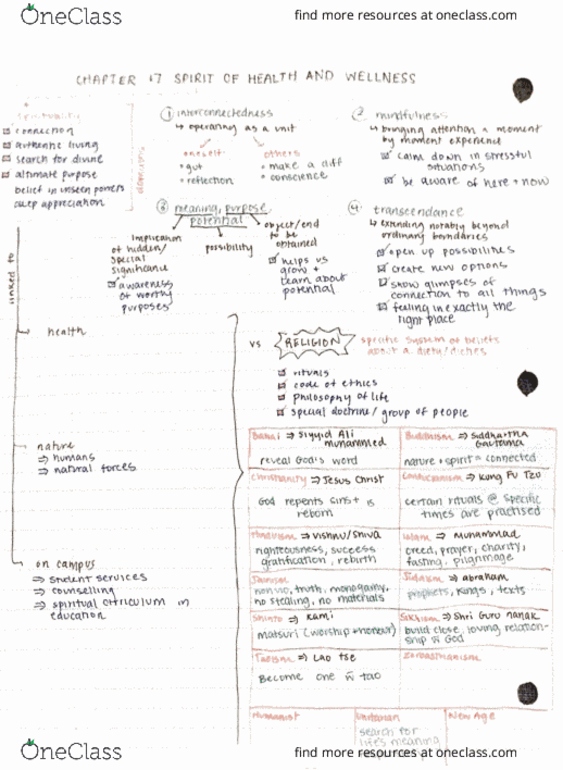 OneClass
find more resources at oneclass.com
CHAPTER 17 SPIRIT OF HEALTH AND WELLNESS
spirituality
connection
authentic living
search for divine
altimate purpose
belief in unseen powers
deep appreciation
dimensions
① interconnectedness
↳ operating as a unit
oneself
• gut
• reflection
others
• make a diff
• conscience
② mindfulness
↳ bringing attention a moment
by moment experience
calm down in stressful
situations
be aware of here + now
③ meaning, purpose
potential
implication
of hidden/
special
significance
awareness
of worthy
purposes
possibility
object/end
to be
obtained
helps us
grow +
learn about
potential
④ transcendance
↳ extending notably beyond
ordinary boundaries
open up possibilities
create new options
show glimpses of
connection to all things
feeling in exactly the
right place
linked to
health
nature
⇒ humans
⇒ natural forces
on campus
⇒ student services
⇒ counselling
⇒ spiritual curriculum in
education
vs
RELIGION
specific system of beliefs
about a diety/dieties
rituals
code of ethics
philosophy of life
special doctrine/ group of people
Bahai ⇒ Siyyid Ali
Muhammed
reveal God's word
Buddhism ⇒ Siddhartha
Gautama
nature + spirit = connected
Christianity ⇒ Jesus Christ
God repents sins + is
reborn
Confucianism ⇒ Kung Fu Tzu
certain rituals @ specific
times are practised
Hinduism ⇒ Vishnu/Shiva
righteousness, success
gratification, rebirth
Islam ⇒ Muhammad
creed, prayer, charity,
fasting, pilgrimage
Jainism
nonvio, truth, monogamy,
no stealing, no materials
Judaism ⇒ abraham
prophets, kings, texts
Shinto ⇒ Kami
matsuri (worship + honour)
Sikhism ⇒ Shri Guru nanak
build close, loving relation-
ship w̄ God
Taoism ⇒ Lao tse
Become one w̄ tao
Zoroastrianism
Humanist
Unitarian
search for
life's meaning
New Age
OneClass
find more resources at oneclass.com